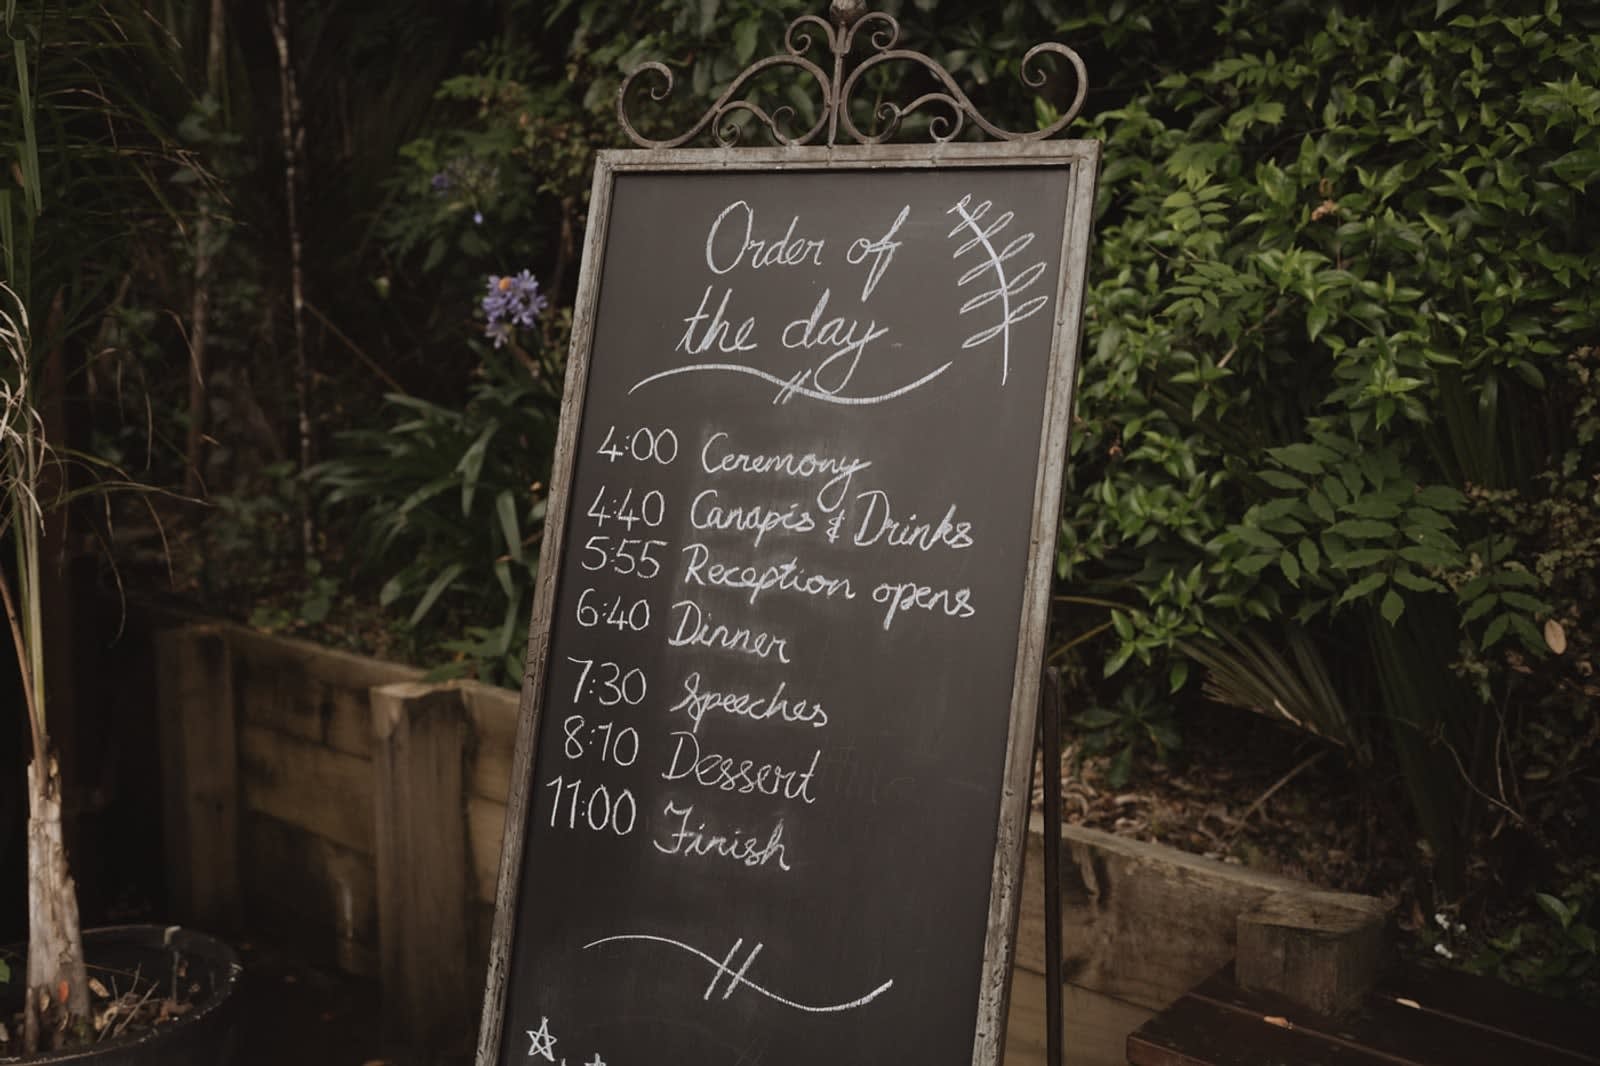 Order of
the day
4:00 Ceremony
4:40 Canapis & Drinks
5:55 Reception opens
6:40 Dinner
7:30 Speeches
8:10 Dessert
11:00 Finish